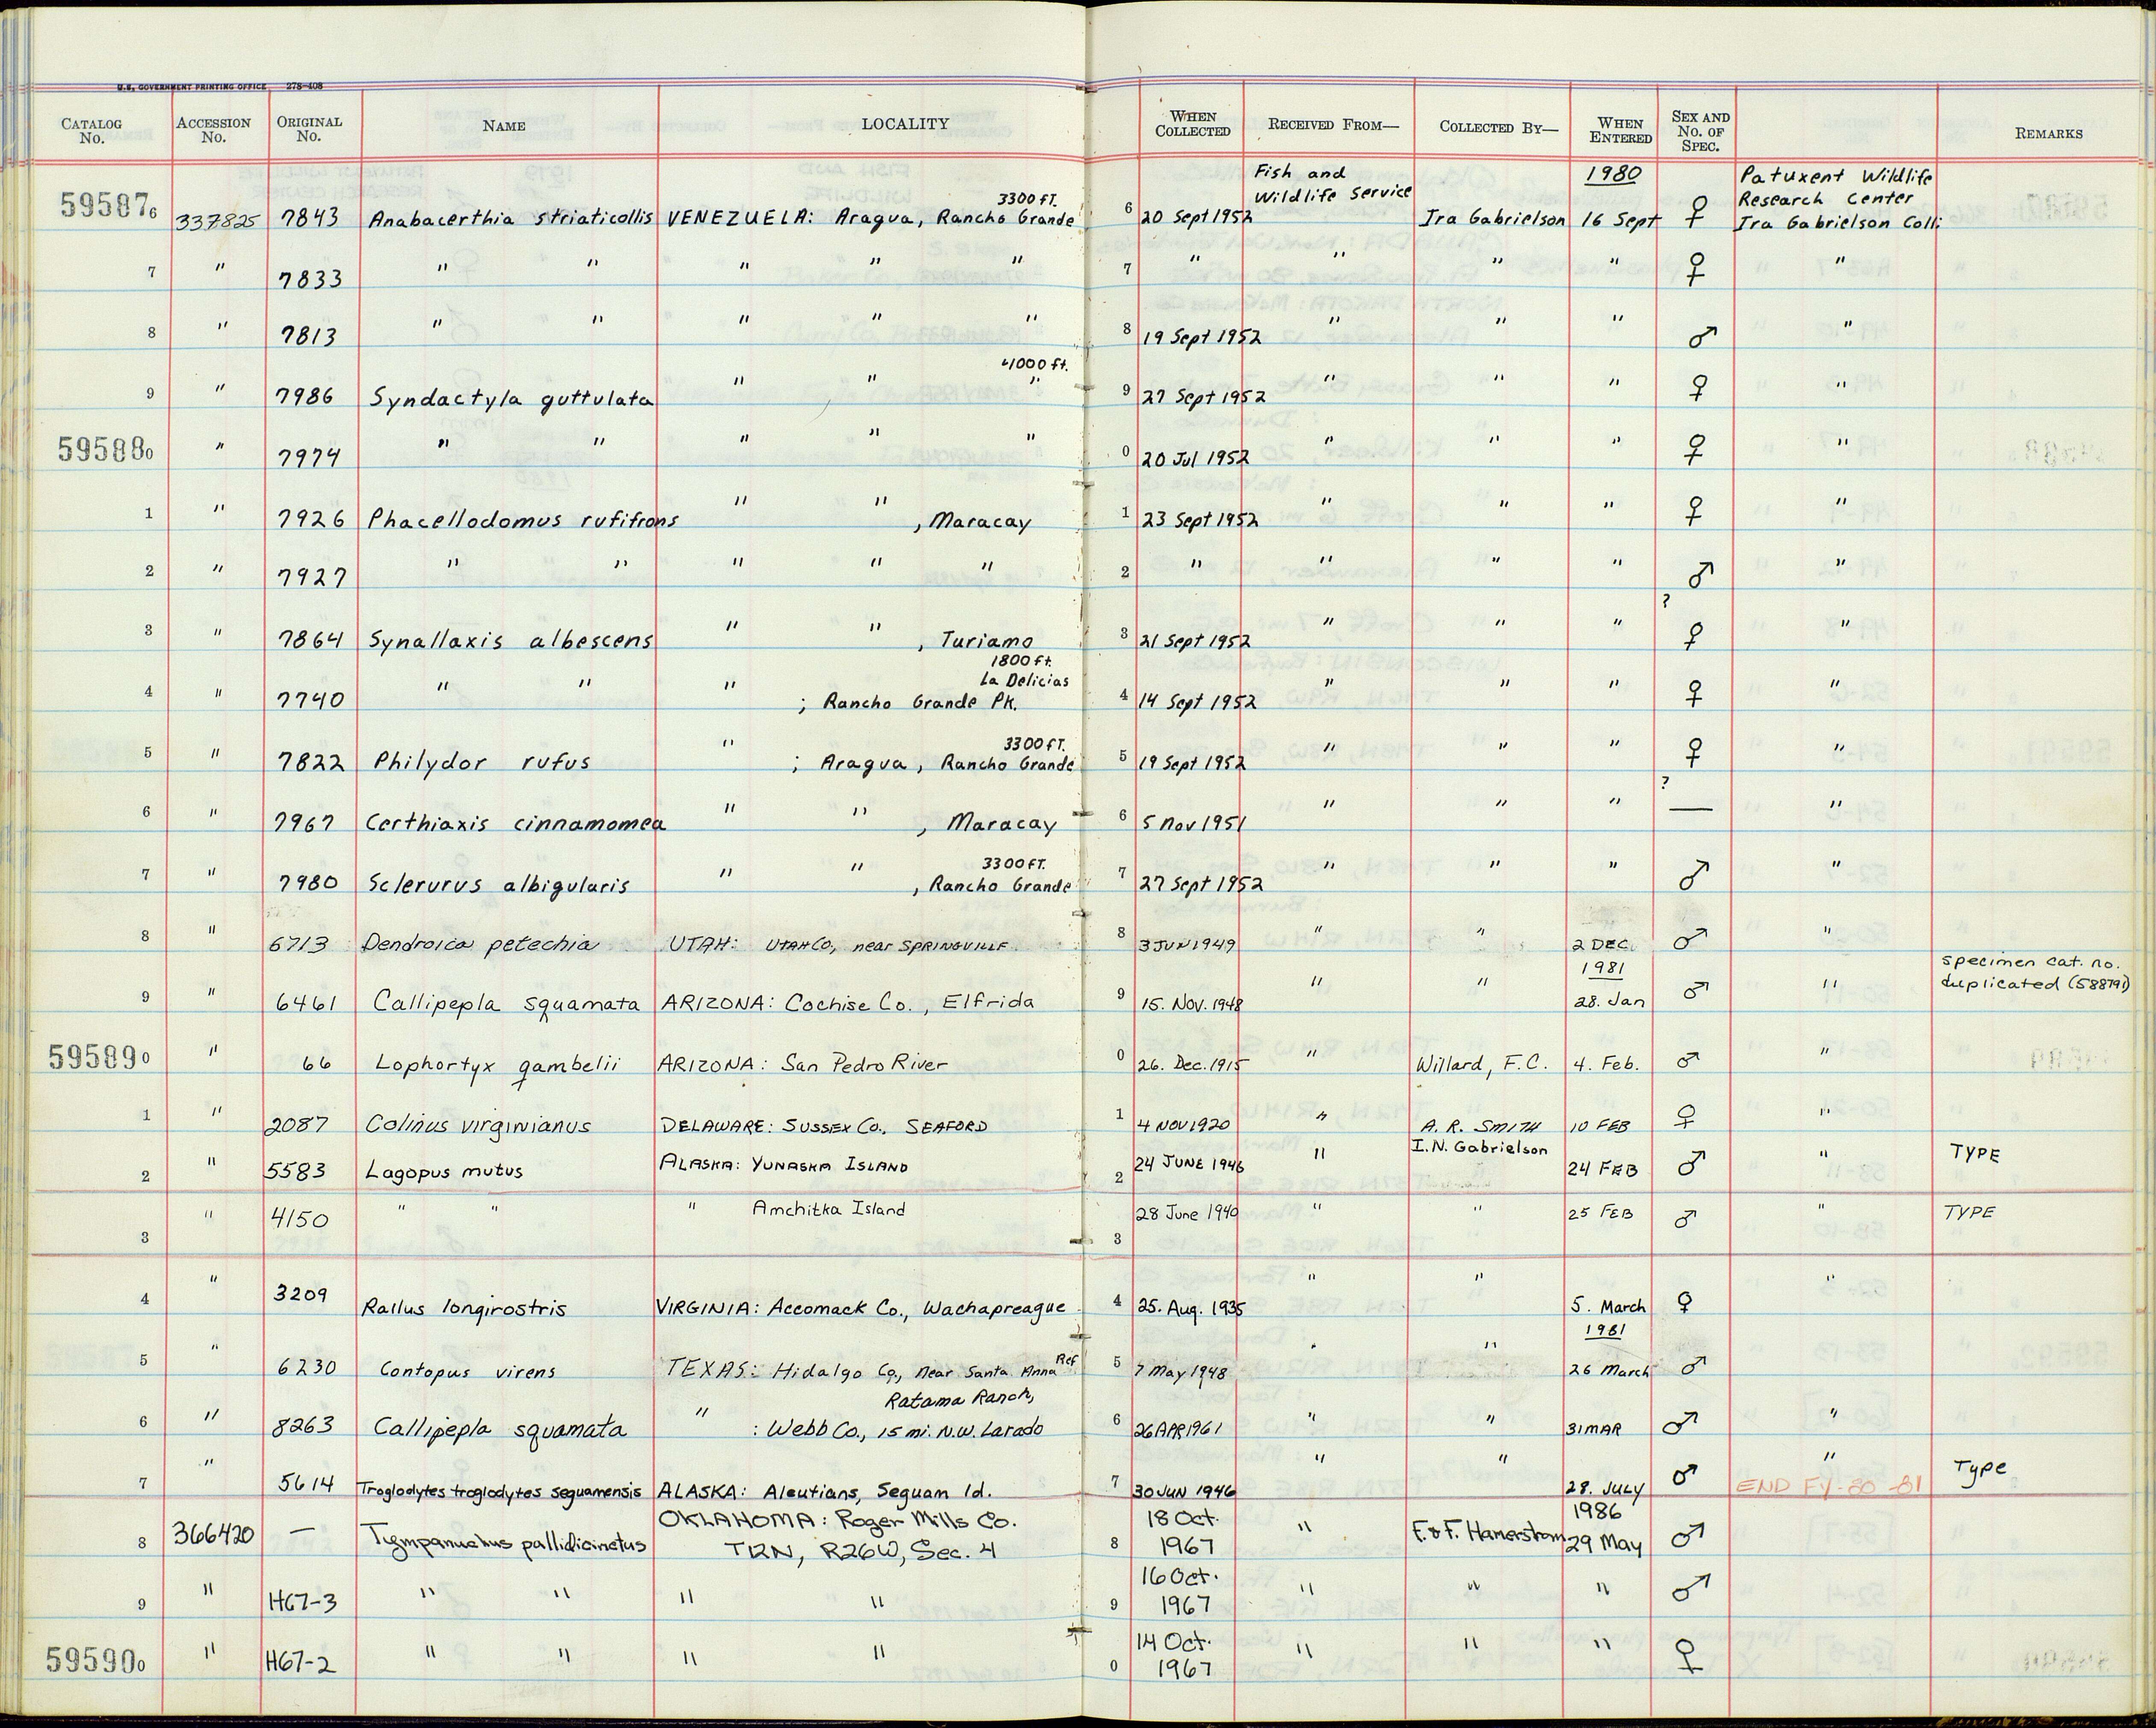 U.S. GOVERNMENT PRINTING OFFICE 278-408
CATALOG No. ACCESSION No. ORIGINAL No. NAME LOCALITY WHEN COLLECTED RECEIVED FROM— COLLECTED BY— WHEN ENTERED SEX AND No. OF SPEC. REMARKS
595876 337825 7843 Anabacerthia striaticollis VENEZUELA: Aragua, Rancho Grande 3300 FT. 6 20 Sept 1952 Fish and Wildlife Service Ira Gabrielson 1980 16 Sept ♀ Patuxent Wildlife Research Center Ira Gabrielson Coll.
7 " 7833 " " " " " 7 " " " " ♀ "
8 " 7813 " " " " " 8 19 Sept 1952 " " " ♂ "
9 " 7986 Syndactyla guttulata " " 4000 ft. " 9 27 Sept 1952 " " " ♀ "
595880 " 7974 " " " " " 0 20 Jul 1952 " " " ♀ "
1 " 7926 Phacellodomus rufifrons " " , Maracay 1 23 Sept 1952 " " " ♀ "
2 " 7927 " " " " " 2 " " " " ♂ "
3 " 7864 Synallaxis albescens " " , Turiamo 3 21 Sept 1952 " " " ? ♀ "
4 " 7740 " " " ; Rancho Grande Pk. 1800 ft. La Delicias 4 14 Sept 1952 " " " ♀ "
5 " 7822 Philydor rufus " ; Aragua, Rancho Grande 3300 FT. 5 19 Sept 1952 " " " ♀ "
6 " 7967 Certhiaxis cinnamomea " " , Maracay 6 5 Nov 1951 " " " ? — "
7 " 7980 Sclerurus albigularis " " , Rancho Grande 3300 FT. 7 27 Sept 1952 " " " ♂ "
8 " 6713 Dendroica petechia UTAH: UTAH CO., near SPRINGVILLE 8 3 JUN 1949 " " 2 DEC. ♂ "
9 " 6461 Callipepla squamata ARIZONA: Cochise Co., Elfrida 9 15. Nov. 1948 " " 1981 28. Jan ♂ " specimen cat. no. duplicated (588791)
595890 " 66 Lophortyx gambelii ARIZONA: San Pedro River 0 26. Dec. 1915 " Willard, F.C. 4. Feb. ♂ "
1 " 2087 Colinus virginianus DELAWARE: SUSSEX CO., SEAFORD 1 4 NOV 1920 " A. R. SMITH 10 FEB ♀ "
2 " 5583 Lagopus mutus ALASKA: YUNASKA ISLAND 2 24 JUNE 1946 " I.N. Gabrielson 24 FEB ♂ " TYPE
3 " 4150 " " " Amchitka Island 3 28 June 1940 " " 25 FEB ♂ " TYPE
4 " 3209 Rallus longirostris VIRGINIA: Accomack Co., Wachapreague 4 25. Aug. 1935 " " 5. March ♀ "
5 " 6230 Contopus virens TEXAS: Hidalgo Co., Near Santa Anna Ref 5 7 May 1948 " " 1981 26 March ♂
6 " 8263 Callipepla squamata " : Webb Co., 15 mi. N.W. Larado Ratama Ranch, 6 26 APR 1961 " " 31 MAR ♂ "
7 " 5614 Troglodytes troglodytes seguamensis ALASKA: Aleutians, Seguam Id. 7 30 JUN 1946 " " 28. JULY ♂ " END FY-80-81 Type
8 366420 — Tympanuchus pallidicinctus OKLAHOMA: Roger Mills Co. T12N, R26W, Sec. 4 8 18 Oct. 1967 " F. & F. Hamerstrom 1986 29 May ♂
9 " H67-3 " " " " 9 16 Oct. 1967 " " " ♂
595900 " H67-2 " " " " 0 14 Oct. 1967 " " " ♀